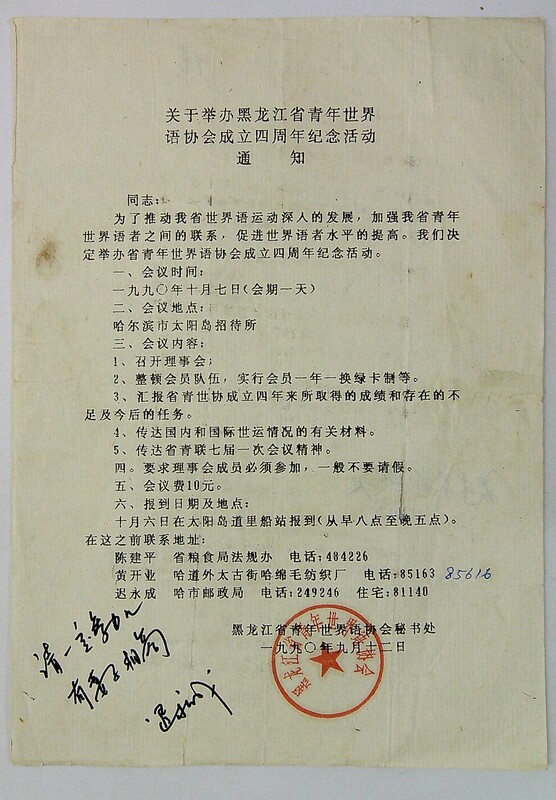 关于举办黑龙江省青年世界
语协会成立四周年纪念活动
通 知
同志：
为了推动我省世界语运动深入的发展，加强我省青年
世界语者之间的联系，促进世界语者水平的提高。我们决
定举办省青年世界语协会成立四周年纪念活动。
一、会议时间：
一九九〇年十月七日(会期一天)
二、会议地点：
哈尔滨市太阳岛招待所
三、会议内容：
1、召开理事会；
2、整顿会员队伍，实行会员一年一换绿卡制等。
3、汇报省青世协成立四年来所取得的成绩和存在的不
足及今后的任务。
4、传达国内和国际世运情况的有关材料。
5、传达省青联七届一次会议精神。
四。要求理事会成员必须参加，一般不要请假。
五、会议费10元。
六、报到日期及地点：
十月六日在太阳岛道里船站报到(从早八点至晚五点)。
在这之前联系地址：
陈建平 省粮食局法规办 电话：484226
黄开业 哈道外太古街哈绵毛纺织厂 电话：85163 85616
迟永成 哈市邮政局 电话：249246 住宅：81140
黑龙江省青年世界语协会秘书处
一九九〇年九月十二日
请一定参加